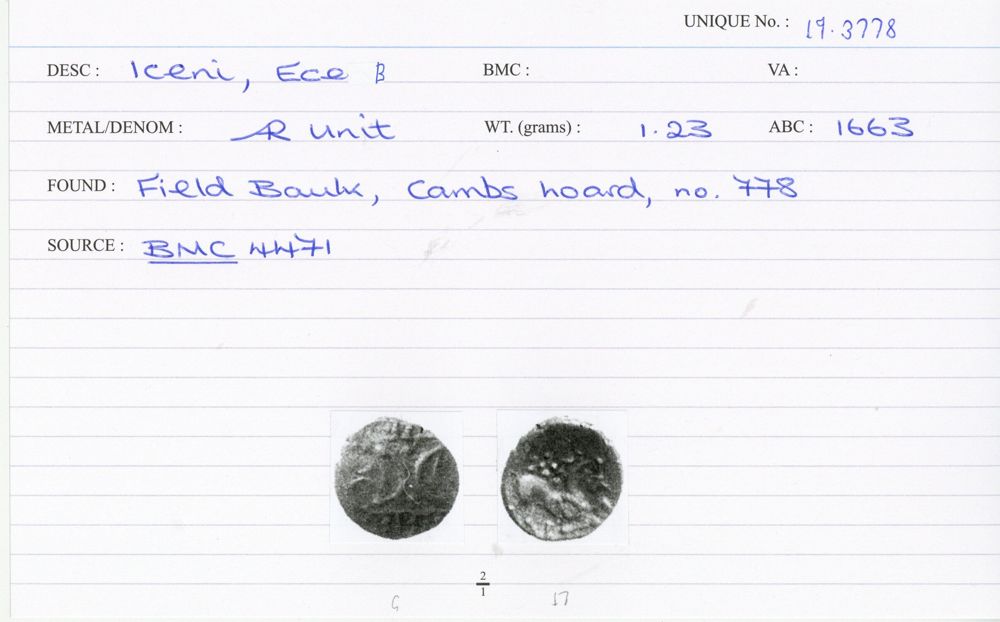 UNIQUE No. : 19.3778
DESC : Iceni, Ece B BMC : VA :
METAL/DENOM : AR unit WT. (grams) : 1.23 ABC : 1663
FOUND : Field Baulk, Cambs hoard, no. 778
SOURCE : BMC 4471
2
1
G 17